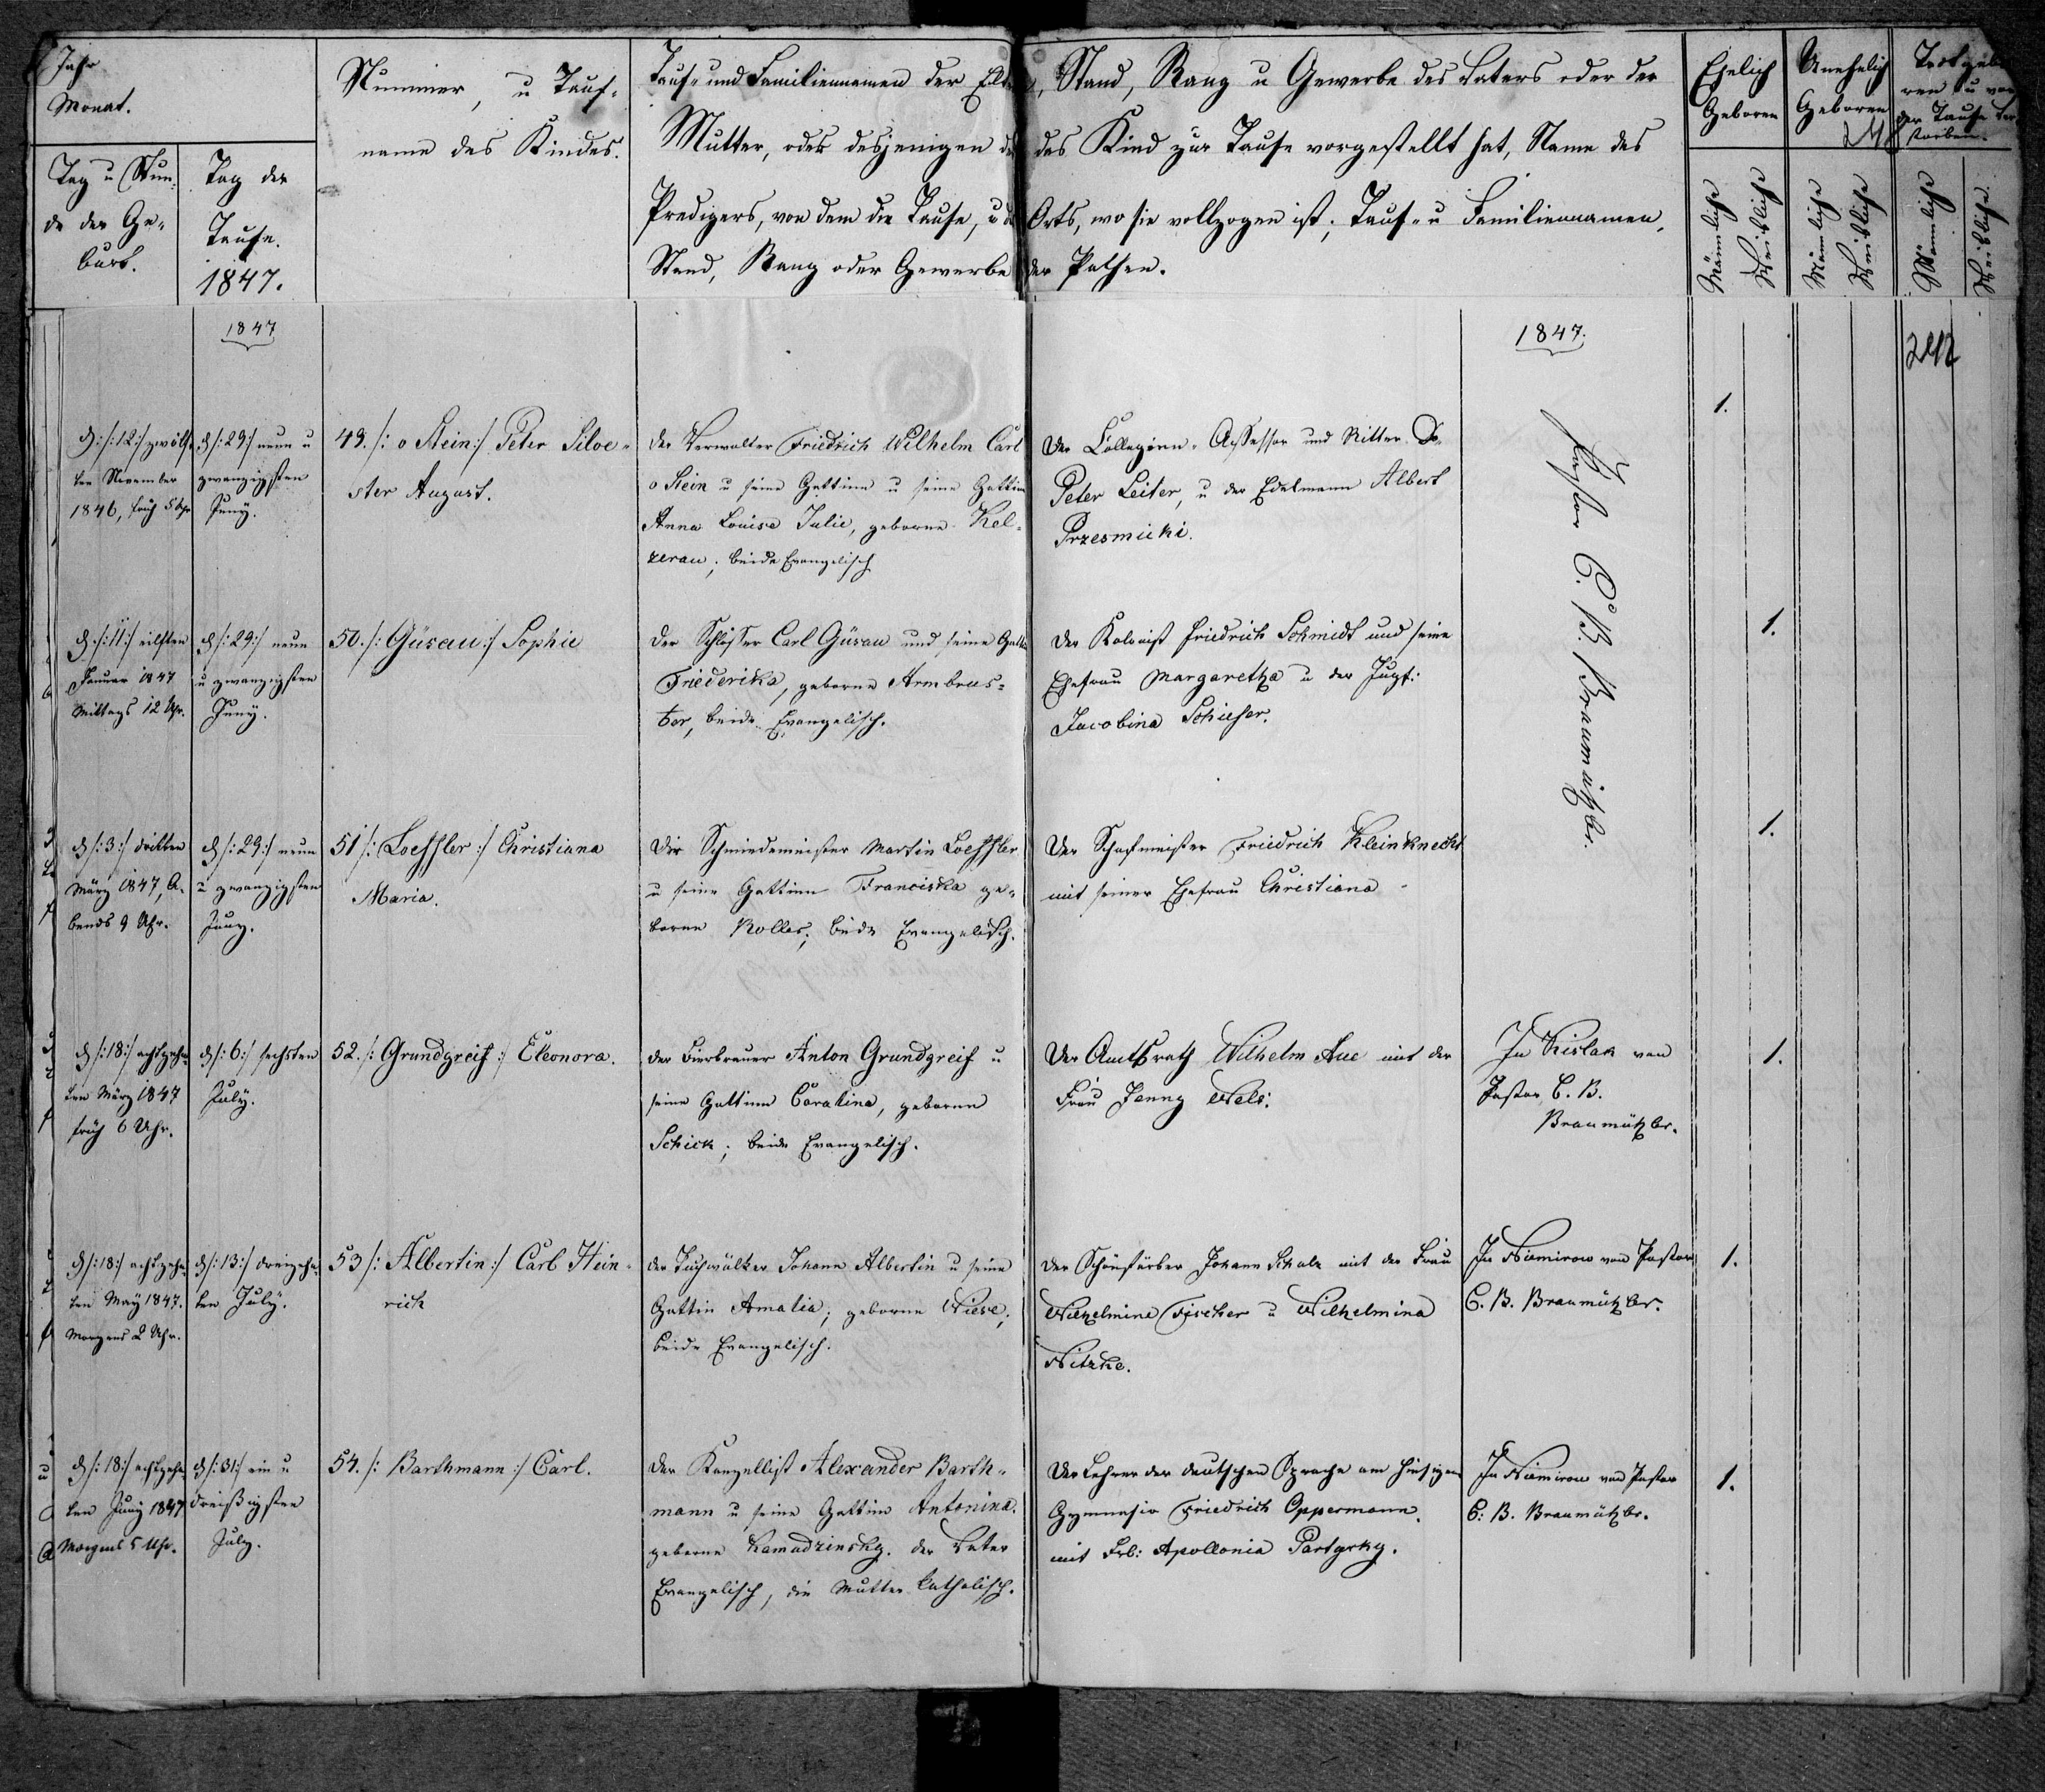 Jahr
Monat.
Tag u Stun-
de der Ge-
burt.
Tag der
Taufe.
1847.
Nummer, u Tauf-
name des Kindes.
Tauf- und Familiennamen der Elte
Mutter, oder desjenigen d
Predigers, von dem die Taufe, u d
Stand, Rang oder Gewerbe
, Stand, Rang u Gewerbe des Vaters oder der
das Kind zur Taufe vorgestellt hat, Name des
Orts, wo sie vollzogen ist; Tauf- u Familiennamen,
der Pathen.
Ehelich
Geboren
Unehelich
Geboren
Todtgebo
ren u vor
der Taufe ver
storben.
Männliche
Weibliche
Männliche
Weibliche
Männliche
Weibliche
1847
1847.
242
d: /:12:/ zwölf-
ten November
1846, früh 5 Uhr
d /:29:/ neun u
zwanzigsten
Juny.
49. /: o Stein :/ Peter Silve-
ster August.
der Verwalter Friedrich Wilhelm Carl
o Stein u seine Gattinn u seine Gattinn
Anna Louise Julie, geborne Kel-
zerau; beide Evangelisch
Der Collegien-Assessor und Ritter
Peter Leiter, u der Edelmann Albert
Przesmicki.
Pastor C. B. Braumützler.
1.
d. /:11:/ eilften
Januar 1847
Mittags 12 Uhr.
d /:29:/ neun
u zwanzigsten
Juny.
50. /: Güsau :/ Sophie
der Schlosser Carl Güsau und seine Gattin
Friederika, geborne Armbrus-
ter, beide Evangelisch.
Der Kolonist Friedrich Schmidt und seine
Ehefrau Margaretha u der Jugf:
Jacobina Schiefer.
1.
d /:3:/ dritten
März 1847, A-
bends 9 Uhr.
d /:29:/ neun
u zwanzigsten
Juny.
51 /: Loeffler :/ Christianna
Maria.
Der Schmiedemeister Martin Loeffler
u seine Gattinn Franciska ge-
borne Roller; beide Evangelisch.
Der Schafmeister Friedrich Kleinknecht
mit seiner Ehefrau Christiana
1.
d /:18:/ achtzehn
ten März 1847
früh 6 Uhr.
d /:6:/ sechsten
July.
52. /: Grundgreif :/ Eleonora.
der Bierbrauer Anton Grundgreif u
seine Gattinn Carolina, geborne
Schick; beide Evangelisch.
Der Amtsrath Wilhelm Aue mit der
Frau Jenny Wels.
In Kislak von
Pastor C. B.
Braumützler.
1.
d /:18:/ achtzehn
ten May 1847.
Morgens 2 Uhr.
d /:13:/ dreizehn
ten July.
53 /: Albertin :/ Carl Hein-
rich
der Tuchwalker Johann Albertin u seine
Gattin Amalia; geborne Wiese;
beide Evangelisch.
Der Schönfärber Johann Schulz mit der Frau
Wilhelmine Fischer u Wilhelmina
Nitzke.
In Niemirow von Pastor
C. B. Braumützler.
1.
d /:18:/ achtzehn
ten Juny 1847
Morgens 5 Uhr.
d /:31:/ ein u
dreißigsten
July.
54. /: Barthmann :/ Carl.
Der Kanzellist Alexander Barth-
mann u seine Gattinn Antonina.
geborne Kamudzinsky. der Vater
Evangelisch, die Mutter katholisch.
Der Lehrer der deutschen Sprache am hiesigen
Gymnasio Friedrich Oppermann
mit Frl: Apollonia Partyrky.
In Niemirow von Pastor
C: B. Braumützler.
1.